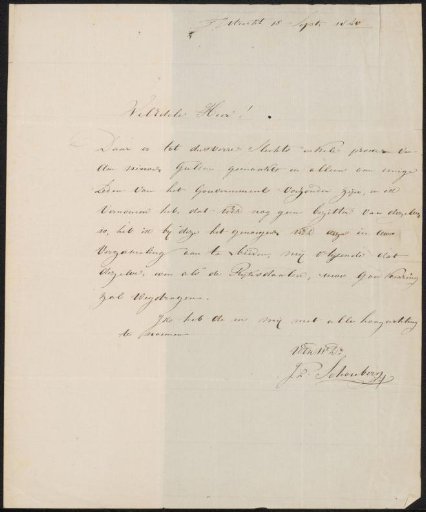 Utrecht 18 Sept. 1840
WelEdele Heer!
Daar er tot dusverre slechts enkele proeven van
den nieuwe Gulden gemaakt en alleen aan eenige
Leden van het Gouvernement verzonden zijn, en ik
vernomen heb, dat UEd nog geen bezitter van dezelve
is, heb ik bij deze het genoegen UEd deze in uwe
Verzameling aan te bieden, mij vleijende dat
dezelve, even als de Rijksdaalder, uwe goedkeuring
zal wegdragen.
Ik heb de eer mij met alle hoogachting
te noemen
UEdW Dr
Schouberg